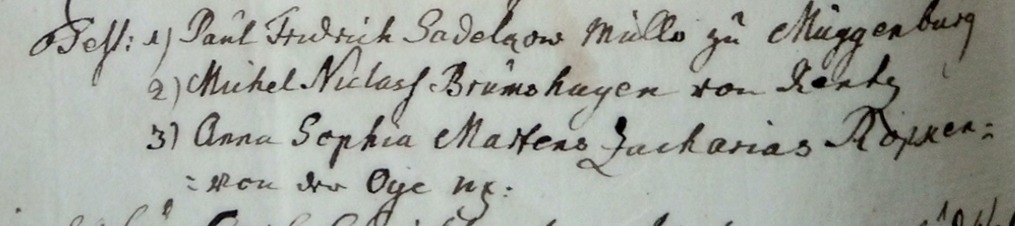 Test: 1) Paul Fridrich Sadelkow Müller zu Müggenburg
2) Michel Niclass Brumshagen von Kentz
3) Anna Sophia Martens Zacharias Röpken=
=von der Oye ux: